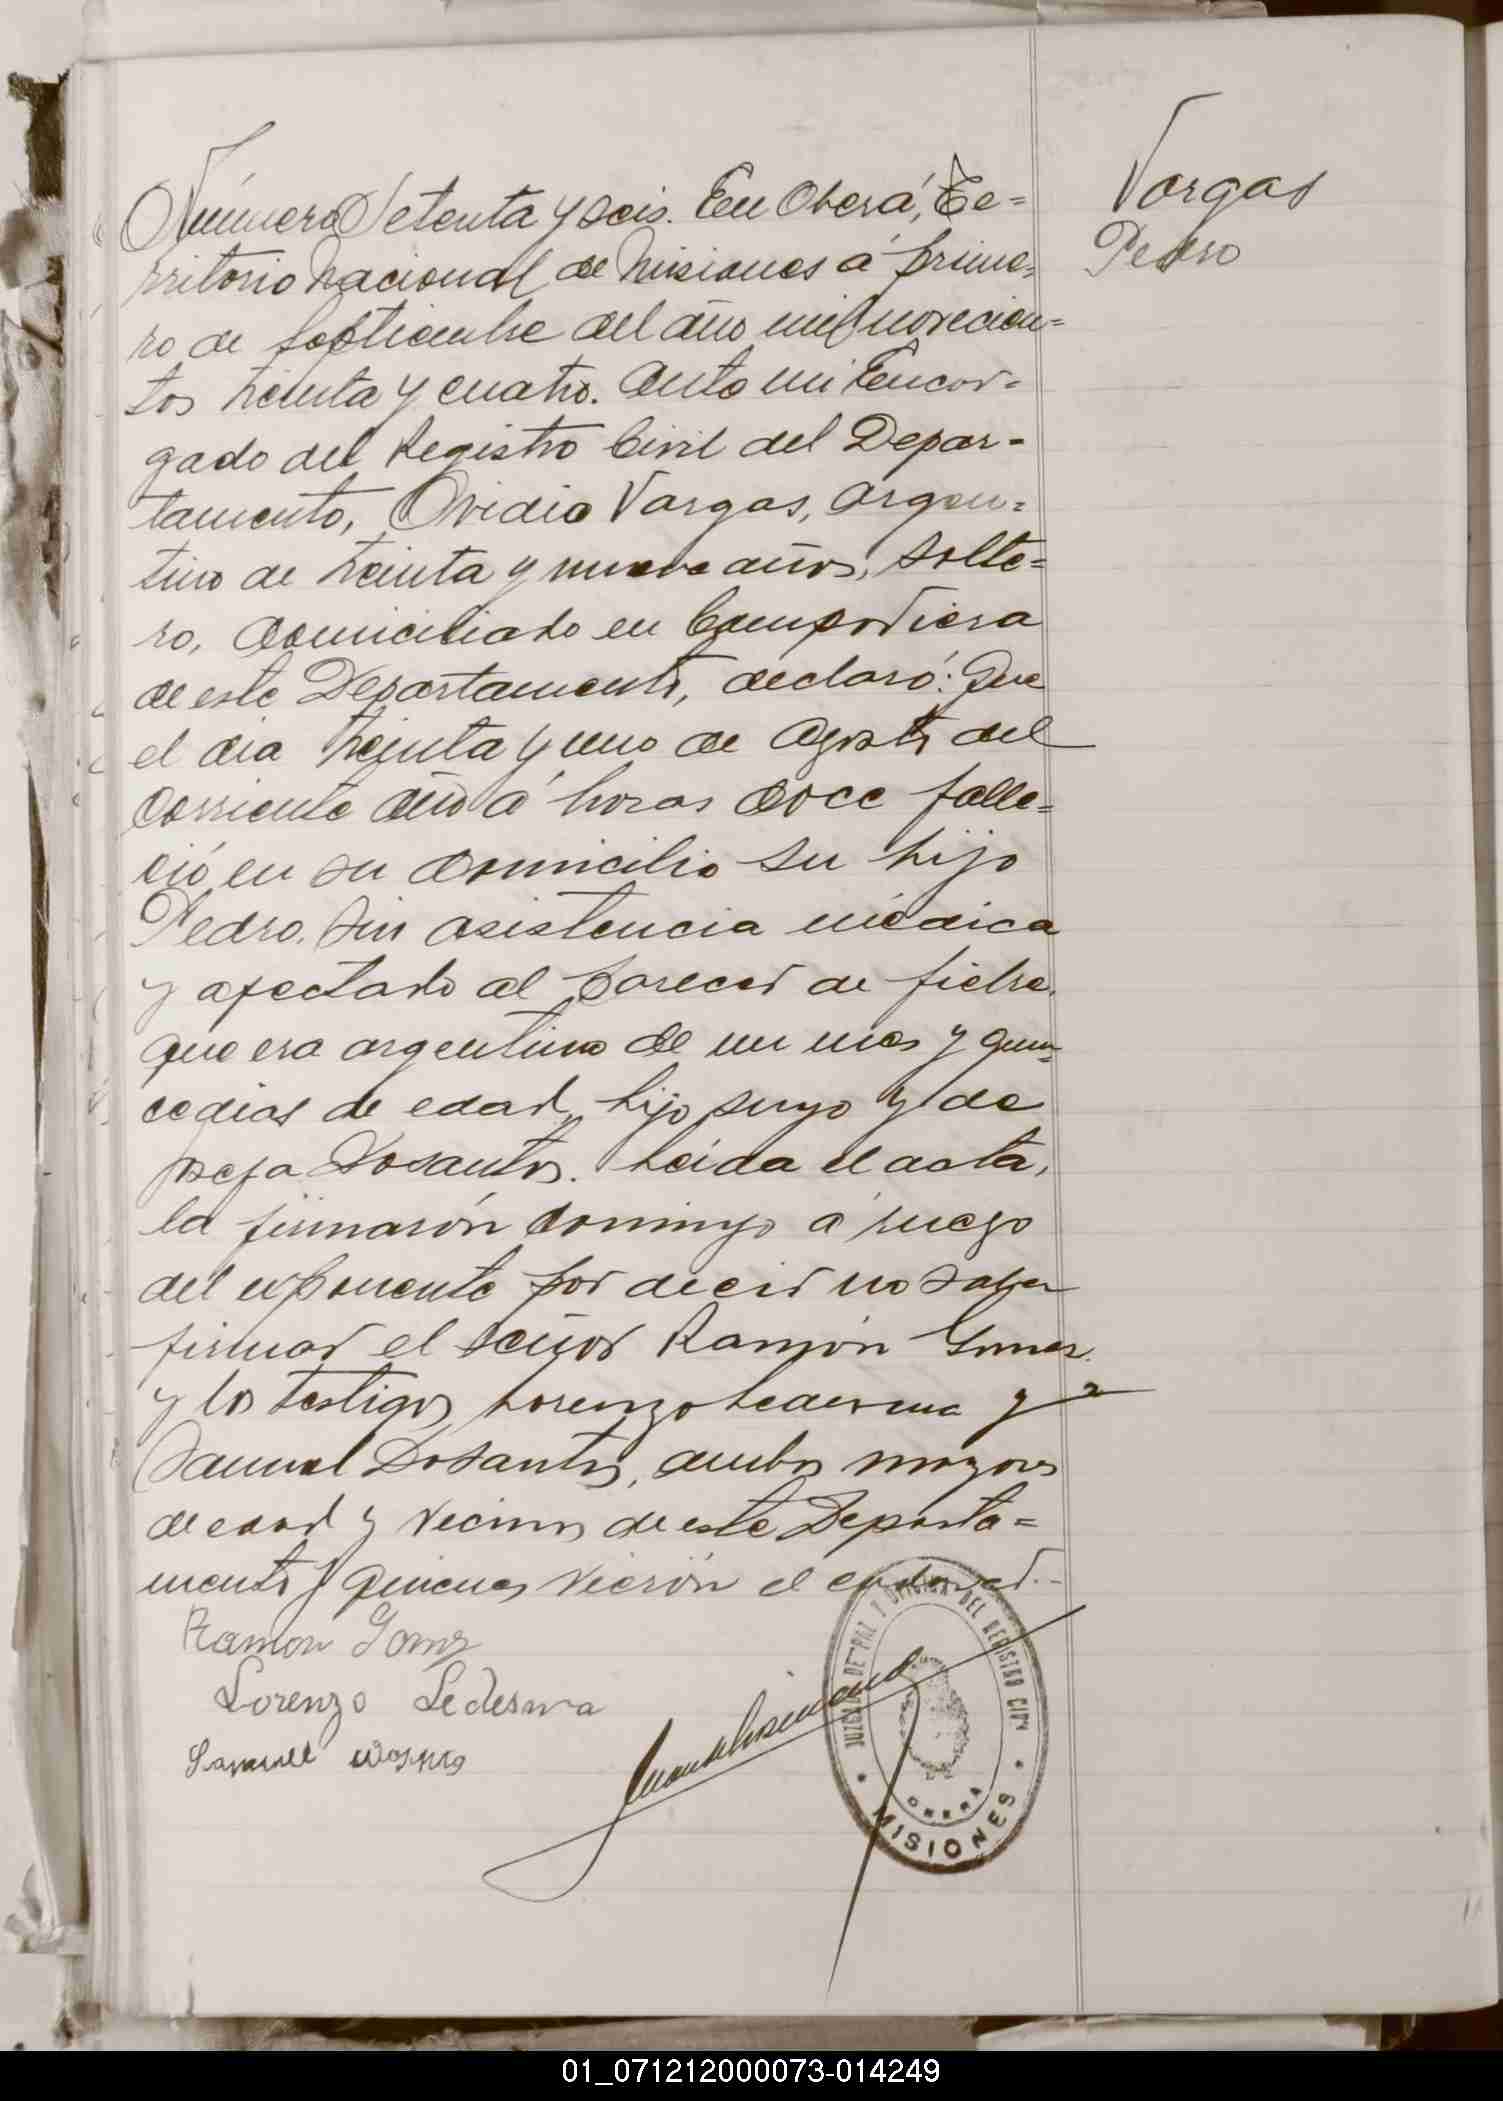 Vargas
Pedro
Número Setenta y seis. En Oberá, Te=
rritorio Nacional de Misiones á prime=
ro de Septiembre del año mil novecien=
tos treinta y cuatro. Ante mi Encar=
gado del Registro Civil del Depar=
tamento, Ovidio Vargas, argen=
tino de treinta y nueve años, solte=
ro, domiciliado en Campo Viera
de este Departamento, declaró: Que
el dia treinta y uno de Agosto del
corriente año á horas doce falle=
ció en su domicilio su hijo
Pedro. Sin asistencia médica
y afectado al parecer de fiebre.
que era argentino de un mes y quin=
ce dias de edad, hijo suyo y de
Dosantos. Leida el acta,
la firmarón conmigo á ruego
del exponente por decir no saber
firmar el señor Ramón Gomez
y los testigos, Lorenzo Ledesma y
Samuel Dosantos, ambos mayores
de edad y vecinos de este Departa=
mento y quienes vierón el cadaver.-
Ramon Gomz
Lorenzo Ledesma
JUZGADO DE PAZ Y OFICINA DEL REGISTRO CIVIL
OBERA
MISIONES
01_071212000073-014249